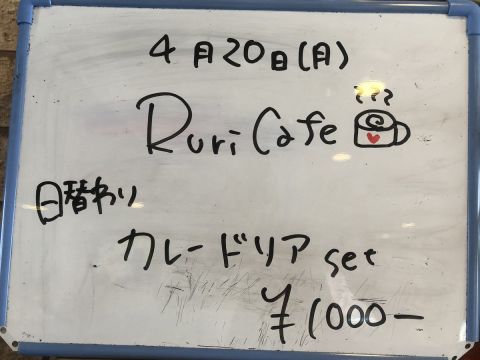 4月20日(月)
Ruri Cafe
日替わり
カレードリア set
¥1000-